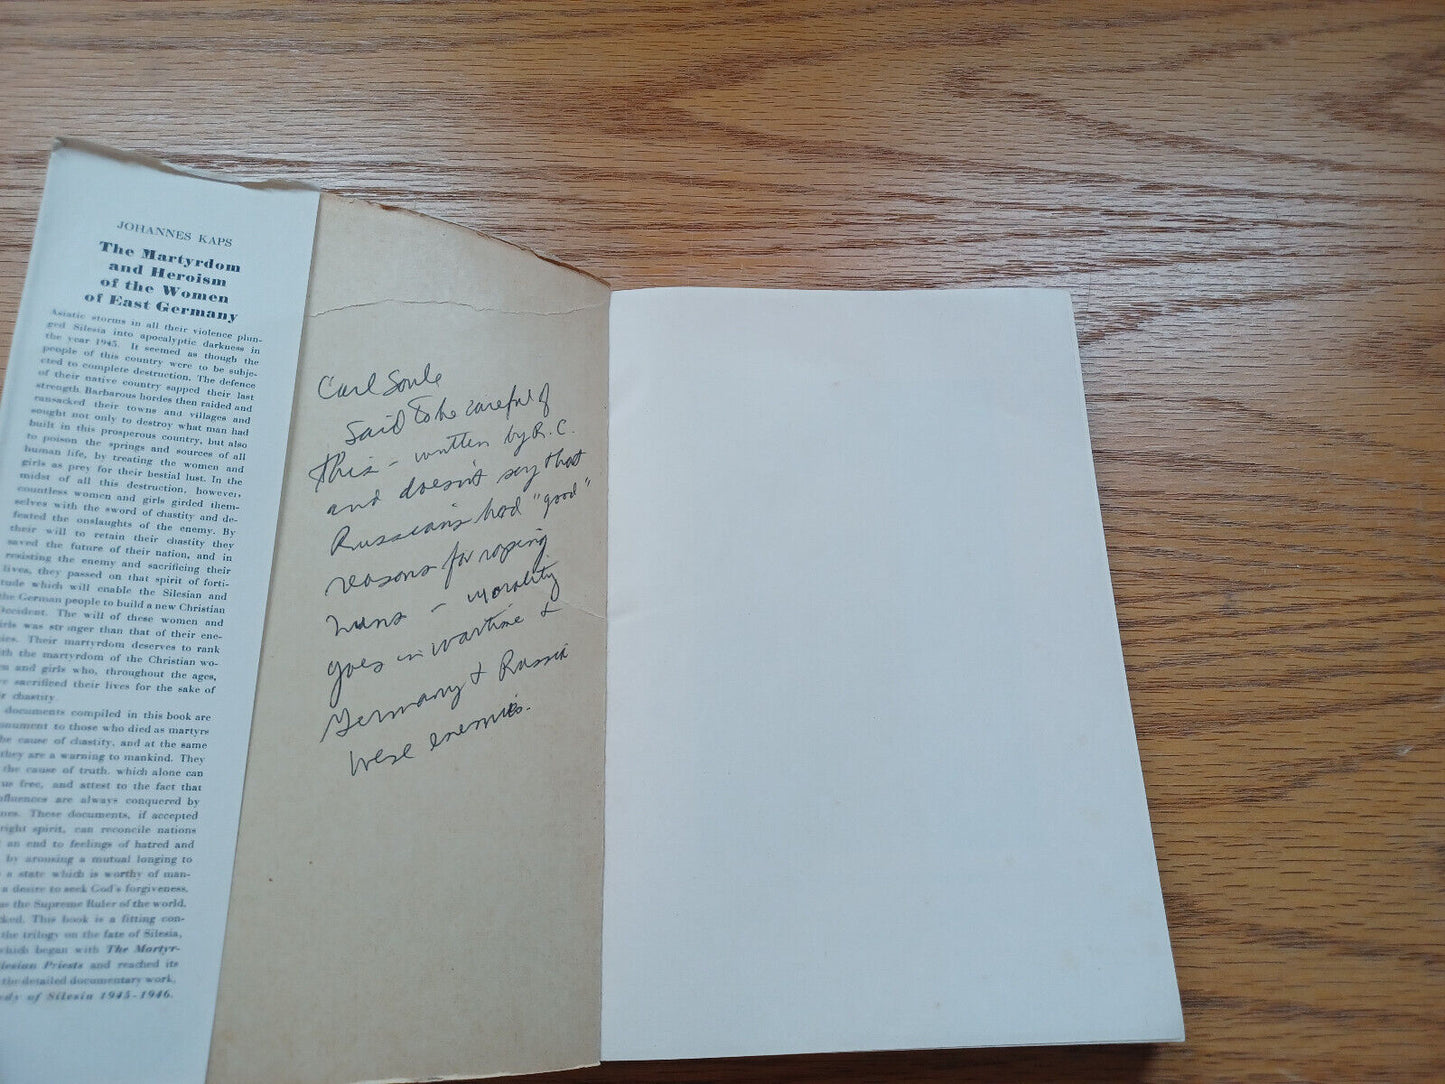 JOHANNES KAPS
The Martyrdom
and Heroism
of the Women
of East Germany
Asiatic storms in all their violence plun-
ged Silesia into apocalyptic darkness in
the year 1945. It seemed as though the
people of this country were to be subje-
cted to complete destruction. The defence
of their native country sapped their last
strength. Barbarous hordes then raided and
ransacked their towns and villages and
sought not only to destroy what man had
built in this prosperous country, but also
to poison the springs and sources of all
human life, by treating the women and
girls as prey for their bestial lust. In the
midst of all this destruction, however,
countless women and girls girded them-
selves with the sword of chastity and de-
feated the onslaughts of the enemy. By
their will to retain their chastity they
saved the future of their nation, and in
resisting the enemy and sacrificing their
lives, they passed on that spirit of forti-
tude which will enable the Silesian and
the German people to build a new Christian
Occident. The will of these women and
girls was stronger than that of their ene-
mies. Their martyrdom deserves to rank
with the martyrdom of the Christian wo-
men and girls who, throughout the ages,
sacrificed their lives for the sake of
chastity.
documents compiled in this book are
monument to those who died as martyrs
the cause of chastity, and at the same
they are a warning to mankind. They
the cause of truth, which alone can
us free, and attest to the fact that
influences are always conquered by
ones. These documents, if accepted
right spirit, can reconcile nations
an end to feelings of hatred and
by arousing a mutual longing to
a state which is worthy of man-
a desire to seek God's forgiveness,
as the Supreme Ruler of the world,
This book is a fitting con-
the trilogy on the fate of Silesia,
which began with The Martyr-
Silesian Priests and reached its
the detailed documentary work,
edy of Silesia 1945-1946.
Carl Soule
Said to be careful of
this – written by R.C.
and doesn't say that
Russians had "good"
reasons for raping
huns – morality
goes in wartime &
Germany & Russia
were enemies.